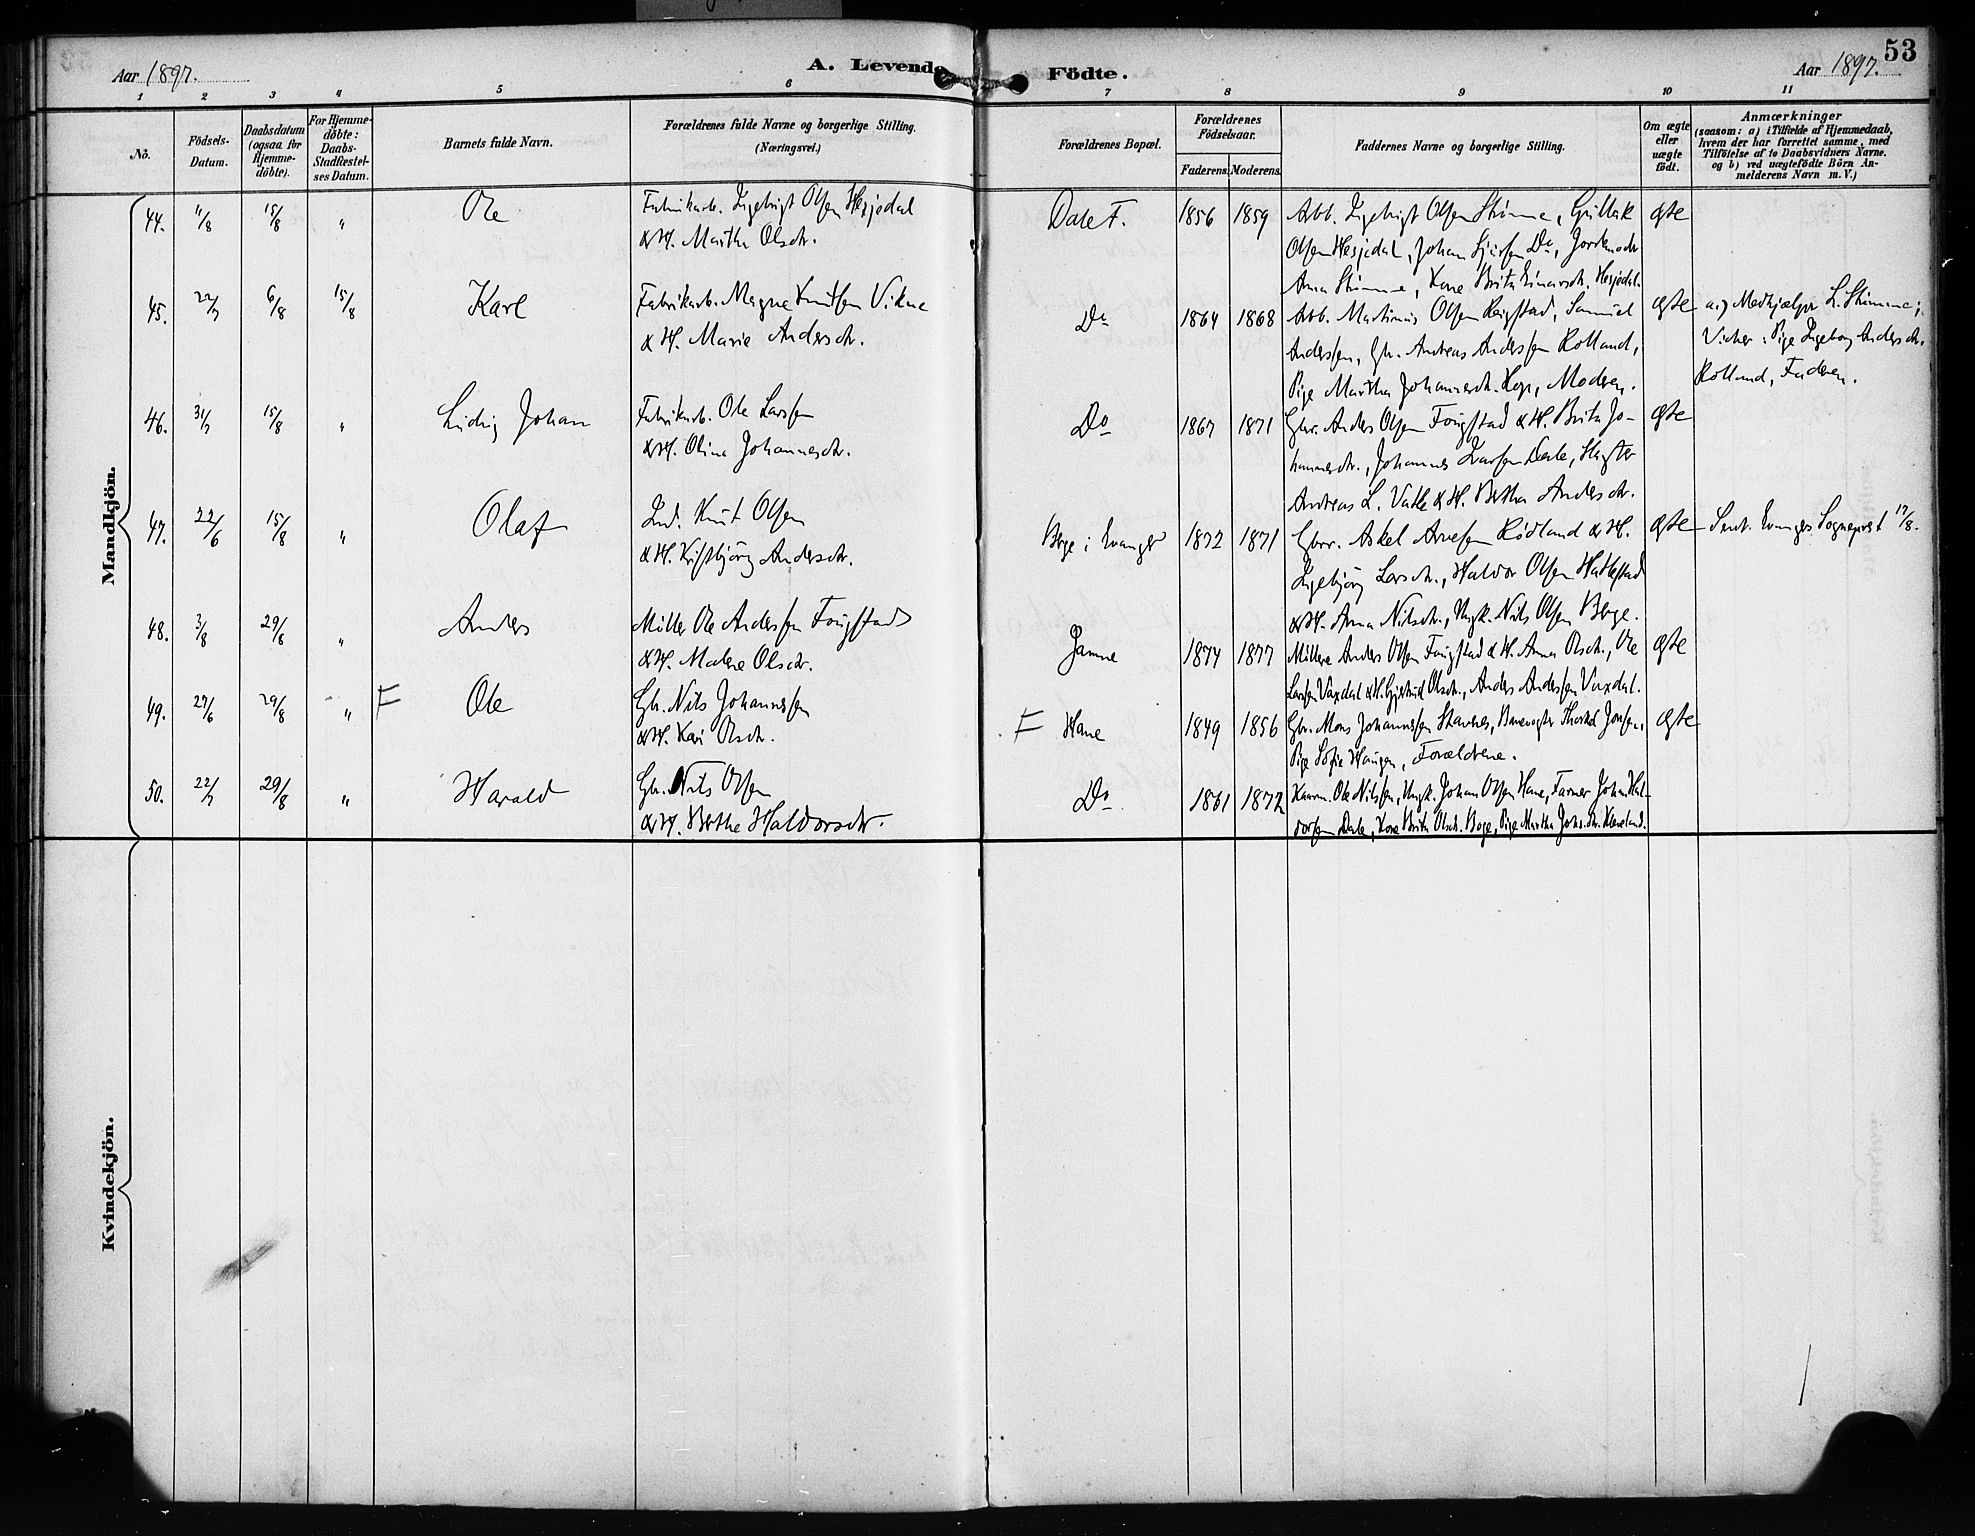 Aar 1897.
A. Levende Födte.
Aar 1897.
53
1 2 3 4 5 6 7 8 9 10 11
No.
Födsels-
Datum.
Daabsdatum
(ogsaa for
Hjemme-
döbte).
For Hjemme-
döbte:
Daabs-
Stadfæstel-
ses Datum.
Barnets fulde Navn.
Forældrenes fulde Navne og borgerlige Stilling.
(Næringsvei.)
Forældrenes Bopæl.
Forældrenes
Födselsaar.
Faderens. Moderens.
Faddernes Navne og borgerlige Stilling.
Om ægte
eller
uægte
födt.
Anmærkninger
(saasom: a) i Tilfælde af Hjemmedaab,
hvem der har forrettet samme, med
Tilföielse af to Daabsvidners Navne,
og b) ved uægtefödte Börn An-
melderens Navn m. V.)
Mandkjön.
44. 11/8 15/8 " Ole
Fabrikarb. Ingebrigt Olsen Hesjedal
& H. Martha Olsdtr.
Dale F. 1856 1859
Arb. Ingebrigt Olsen Skimme,
Olsen Hesjedal, Johan Do, Jordemoder
Anna Skimme, Kone Brita Einarsdtr. Hesjedal.
ægte
45. 22/7 6/8 15/8 Karl
Fabrikarb. Magne Knutsen Vikne
& H. Marie Andersdtr.
Do 1864 1868
Arb. Martinus Olsen Reigstad, Samuel
Anderssen, Gbr. Andreas Anderssen Rolland,
Pige Martha Johannesdtr. Hop, Moderen.
ægte
a.) Medhjælper L. Skimme;
Vidner: Pige Ingeborg Andersdtr.
Rolland, Faderen.
46. 31/7 15/8 " Ludvig Johan
Fabrikarb. Ole Larssen
& H. Olina Johannesdtr.
Do 1867 1871
Gbr. Anders Olsen Fougstad & H. Brita Jo-
hannesdtr., Johannes Larssen Dale, Slagter
Andreas L. Valle & H. Bertha Andersdtr.
ægte
47. 22/6 15/8 " Olaf
Ind. Knut Olsen
& H. Kristbjörg Andersdtr.
Berge i Evanger 1872 1871
Gbr. Askel Arnesen Rödland & H.
Ingebjörg Larsdtr., Haldor Olsen Hatlestad
& H. Anna Nilsdtr., Ungk. Nils Olsen Berge.
ægte
Sendt Evanger Sogneprest 17/8.
48. 3/8 29/8 " Anders
Möller Ole Anderssen Fougstad
& H. Malene Olsdtr.
Jamne 1874 1877
Möllere Anders Olsen Fougstad & H. Anna Olsdtr., Ole
Larssen Vaxdal & H. Gjertrud Olsdtr., Anders Anderssen Vaxdal.
ægte
49. 27/6 29/8 " F Ole
Gbr. Nils Johannessen
& H. Kari Olsdtr.
F Hane 1849 1856
Gbr. Mons Johannessen Stavenes, Banevogter Thorkel Jonsen,
Pige Sofie Haugen, Forældrene.
ægte
50. 22/7 29/8 " Harald
Gbr. Nils Olsen
& H. Berthe Haldorsdtr.
Do 1861 1872
Kaarm. Ole Nilssen, Ungk. Johan Olsen Hane, Farmer Johan Hal-
dorsen Dale, Kone Brita Olsdtr. Boge, Pige Martha Johs.dtr. Kleveland.
Kvindekjön.